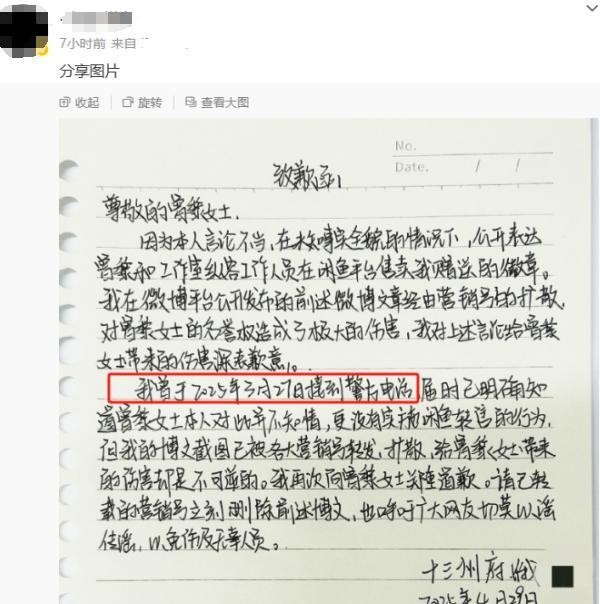 7小时前 来自
分享图片
收起 旋转 查看大图
No.
Date. / /
致歉函
尊敬的曾黎女士.
因为本人言论不当,在未知完全貌的情况下,公开表达
曾黎和工作室纵容工作人员在闲鱼平台售卖我赠送的徽章。
我在微博平台公开发布的前述微博文章经由营销号的扩散,
对曾黎女士的名誉权造成了极大的伤害,我对上述言论给曾黎
女士带来的伤害深表歉意。
我曾于2025年3月27日接到警方电话,届时已明确知
道曾黎女士本人对此并不知情,更没有实施闲鱼转售的行为,
但我的博文截图已被各大营销号转发、扩散,给曾黎女士带来
的伤害却是不可逆的。我再次向曾黎女士郑重道歉。请已转
载的营销号立刻删除前述博文,也呼吁广大网友切莫以谣
传谣,以免伤及无辜人员。
十三州府
2025年4月29日